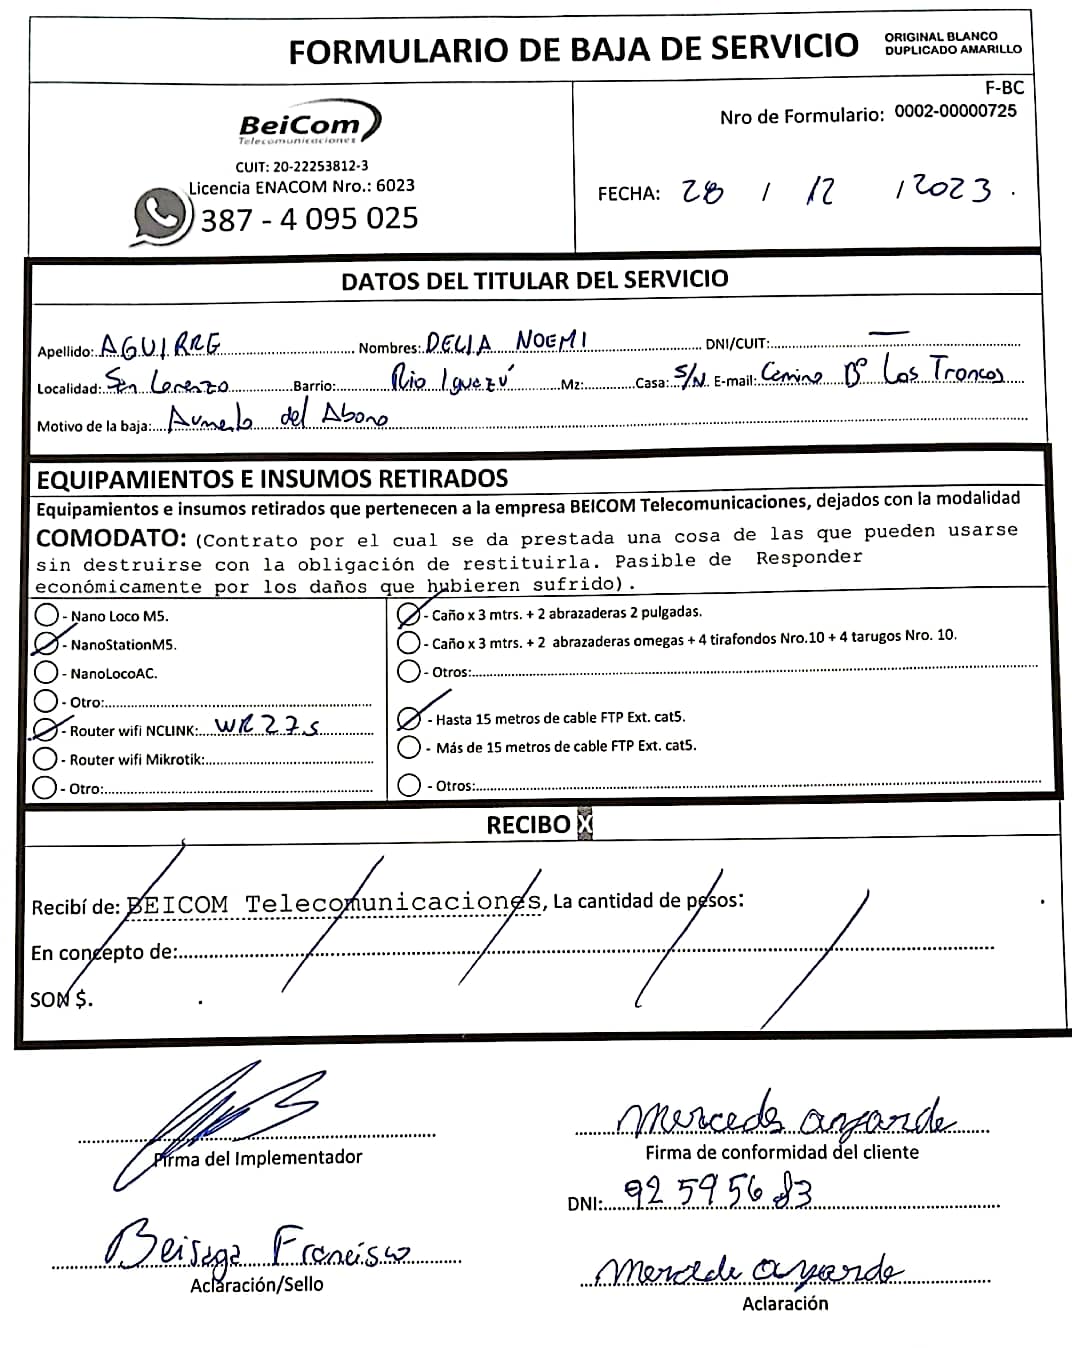 FORMULARIO DE BAJA DE SERVICIO
ORIGINAL BLANCO
DUPLICADO AMARILLO
BeiCom
Telecomunicaciones
CUIT: 20-22253812-3
Licencia ENACOM Nro.: 6023
387 - 4 095 025
F-BC
Nro de Formulario: 0002-00000725
FECHA: 28 / 12 / 2023.
DATOS DEL TITULAR DEL SERVICIO
Apellido: AGUIRRE Nombres: DELIA NOEMI DNI/CUIT: —
Localidad: San Lorenzo Barrio: Rio Iguazú Mz: Casa: S/N. E-mail: Camino B° Los Troncos
Motivo de la baja: Aumento del Abono
EQUIPAMIENTOS E INSUMOS RETIRADOS
Equipamientos e insumos retirados que pertenecen a la empresa BEICOM Telecomunicaciones, dejados con la modalidad
COMODATO: (Contrato por el cual se da prestada una cosa de las que pueden usarse
sin destruirse con la obligación de restituirla. Pasible de Responder
económicamente por los daños que hubieren sufrido).
- Nano Loco M5.
- NanoStationM5.
- NanoLocoAC.
- Otro:
- Router wifi NCLINK: WR27s
- Router wifi Mikrotik:
- Otro:
- Caño x 3 mtrs. + 2 abrazaderas 2 pulgadas.
- Caño x 3 mtrs. + 2 abrazaderas omegas + 4 tirafondos Nro.10 + 4 tarugos Nro. 10.
- Otros:
- Hasta 15 metros de cable FTP Ext. cat5.
- Más de 15 metros de cable FTP Ext. cat5.
- Otros:
RECIBO X
Recibí de: BEICOM Telecomunicaciones, La cantidad de pesos:
En concepto de:
SON $.
Firma del Implementador
Beisaga Francisco
Aclaración/Sello
Mercedes ayarde
Firma de conformidad del cliente
DNI: 92595683
Mercede ayarde
Aclaración